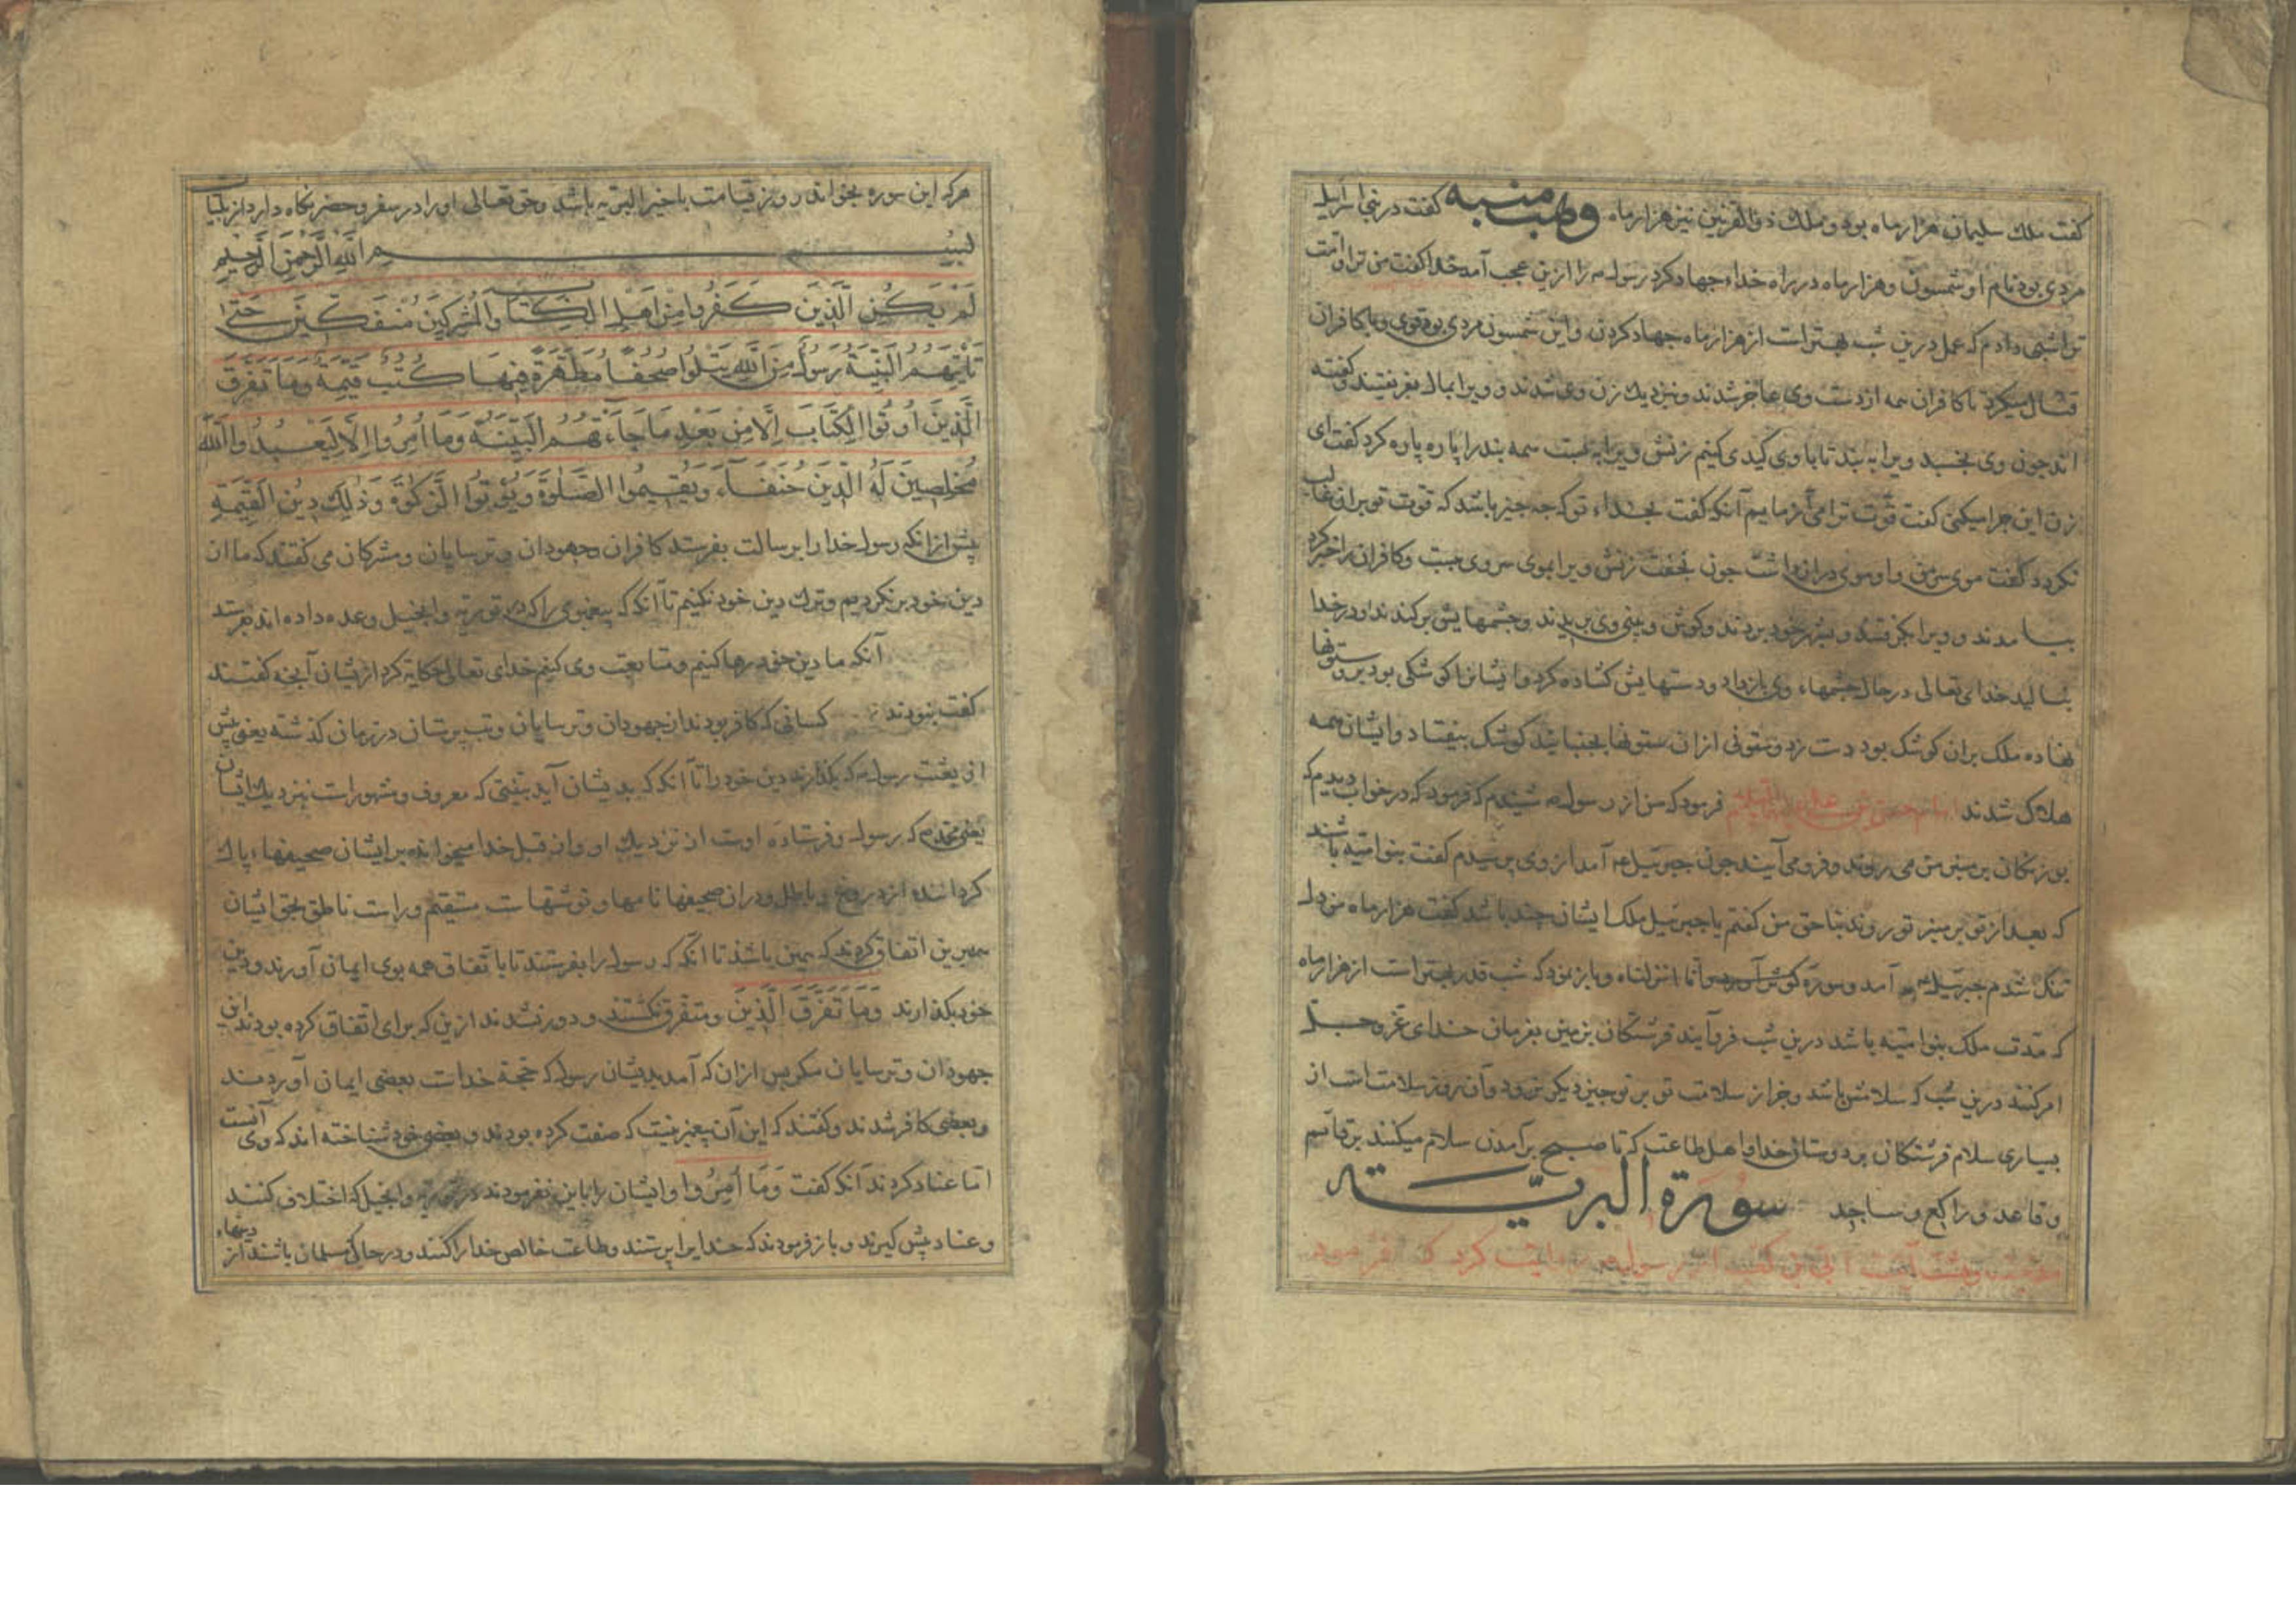 گفت ملک سلیمان هزار ماه بود و ملک ذوالقرنین نیز هزار ماه وهب منبه گفت در بنی اسرائیل
مردی بود نام او شمسون و هزار ماه در راه خدا جهاد کرد رسول را ازین عجب آمد خدا گفت من ترا و امت
ترا شبی دادم که عمل درین شب بهتر است از هزار ماه جهاد کردن و این شمسون مردی بود قوی و با کافران
قتال میکرد تا کافران همه از دست وی عاجز شدند و نزدیک زن وی شدند و ویرا بمال بفریفتند و گفتند
اند چون وی بخسبد ویرا به بند تا با وی کیدی کنیم زنش ویرا به بست همه بند را پاره پاره کرد گفت ای
زن این چرا میکنی گفت قوت ترا می آزمایم آنکه گفت بخدا تو که چه چیز باشد که قوت تو بران غالب
نگردد گفت موی سر من و او موی دراز داشت چون بخفت زنش ویرا بموی سر وی ببست و کافران را خبر کرد
بیامدند و ویرا بگرفتند و بشهر خود بردند و گوش و بینی وی بریدند و چشمهایش برکندند او در خدا
بنالید خدای تعالی در حال چشمهاء وی باز داد و دستهایش گشاده کرد و ایشانرا کوشکی بود بر ستونها
نهاده ملک بران کوشک بود دست زد و ستونی ازان ستونها بجنبانید کوشک بیفتاد و ایشان همه
هلاک شدند امام حسن بن علی فرمود که من از رسول شنیدم که فرمود که در خواب دیدم که
بوزنگان بر منبر من می روند و فرو می آیند چون جبرئیل آمد از وی پرسیدم گفت بنو امیه باشند
که بعد از تو بر منبر تو روند بناحق من گفتم یا جبرئیل ملک ایشان چند باشد گفت هزار ماه من دل
تنگ شدم جبرئیل آمد و سوره انا انزلناه و باز نمود که شب قدر بهتر است از هزار ماه
که مدت ملک بنو امیه باشد درین شب فرو آیند فرشتگان بزمین بفرمان خدای عز و جل
امر کنند درین شب که سلامش باشد و جز از سلامت تو بر تو چیز دیگر نرود و آن روز سلامت است از
بسیاری سلام فرشتگان بر دوستان خدا و اهل طاعت که تا صبح برآمدن سلام میکنند بر قائم
و قاعد و راکع و ساجد سورة البریة
هشت آیت ابی بن کعب از رسول روایت کرد که فرمود
هرکه این سوره بخواند روز قیامت با خیر البریه باشد و حق تعالی او را در سفر و حضر نگاه دارد از بلیات
بسم الله الرحمن الرحیم
لَمْ يَكُنِ الَّذِينَ كَفَرُوا مِنْ اَهْلِ الْكِتَابِ وَالْمُشْرِكِينَ مُنْفَكِّينَ حَتَّى
تَأْتِيَهُمُ الْبَيِّنَةُ رَسُولٌ مِنَ اللَّهِ يَتْلُوا صُحُفًا مُطَهَّرَةً فِيهَا كُتُبٌ قَيِّمَةٌ وَمَا تَفَرَّقَ
الَّذِينَ اُوتُوا الْكِتَابَ اِلَّا مِنْ بَعْدِ مَا جَاءَتْهُمُ الْبَيِّنَةُ وَمَا اُمِرُوا اِلَّا لِيَعْبُدُوا اللَّهَ
مُخْلِصِينَ لَهُ الدِّينَ حُنَفَاءَ وَيُقِيمُوا الصَّلٰوةَ وَيُؤْتُوا الزَّكٰوةَ وَذٰلِكَ دِينُ الْقَيِّمَةِ
پیش از انکه رسول خدا را برسالت بفرستد کافران و جهودان و ترسایان و مشرکان می گفتند که ما از
دین خود برنگردیم و ترک دین خود نکنیم تا آنکه که پیغمبری را که در توریة و انجیل وعده داده اند بفرستد
آنکه ما دین خود رها کنیم و متابعت وی کنیم خدای تعالی حکایة کرد از ایشان آنچه گفتند
گفت نبودند کسانی که کافر بودند از جهودان و ترسایان و بت پرستان در زمان گذشته یعنی پیش
از بعثت رسول که بگذارند دین خود را تا آنکه که بدیشان آید بینتی که معروف و مشهور است نزدیک ایشان
یعنی محمد که رسول و فرستاده اوست از نزدیک او و از قبل خدا میخواند بر ایشان صحیفهاء پاک
کردانیده از دروغ و باطل و دران صحیفها نامها و نوشتهاست مستقیم و راست ناطق بحق ایشان
همبرین اتفاق کردند که همین باشد تا آنکه که رسول را بفرستند تا باتفاق همه بوی ایمان آورند و دین
خود بگذارند وَمَا تَفَرَّقَ الَّذِينَ و متفرق نگشتند و دور نشدند ازین که برای اتفاق کرده بودند این
جهودان و ترسایان مگر پس ازان که آمد بدیشان رسول که حجة خداست بعضی ایمان آوردند
و بعضی کافر شدند و گفتند که این آن پیغمبر نیست که صفت کرده بودند و بعضی خود شناخته اند که وی آنست
اما عناد کردند آنکه گفت وَمَا اُمِرُوا و ایشان را باین نفرمودند در توریة و انجیل که اختلاف کنند
و عناد پیش گیرند و باز فرمودند که خدایرا پرستند و طاعت خالص خدا را کنند و در حالی که مسلمان باشند از دینهاء